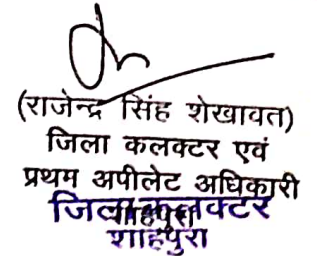 (राजेन्द्र सिंह शेखावत)
जिला कलक्टर एवं
प्रथम अपीलेट अधिकारी
जिला कलक्टर
शाहपुरा
शाहपुरा